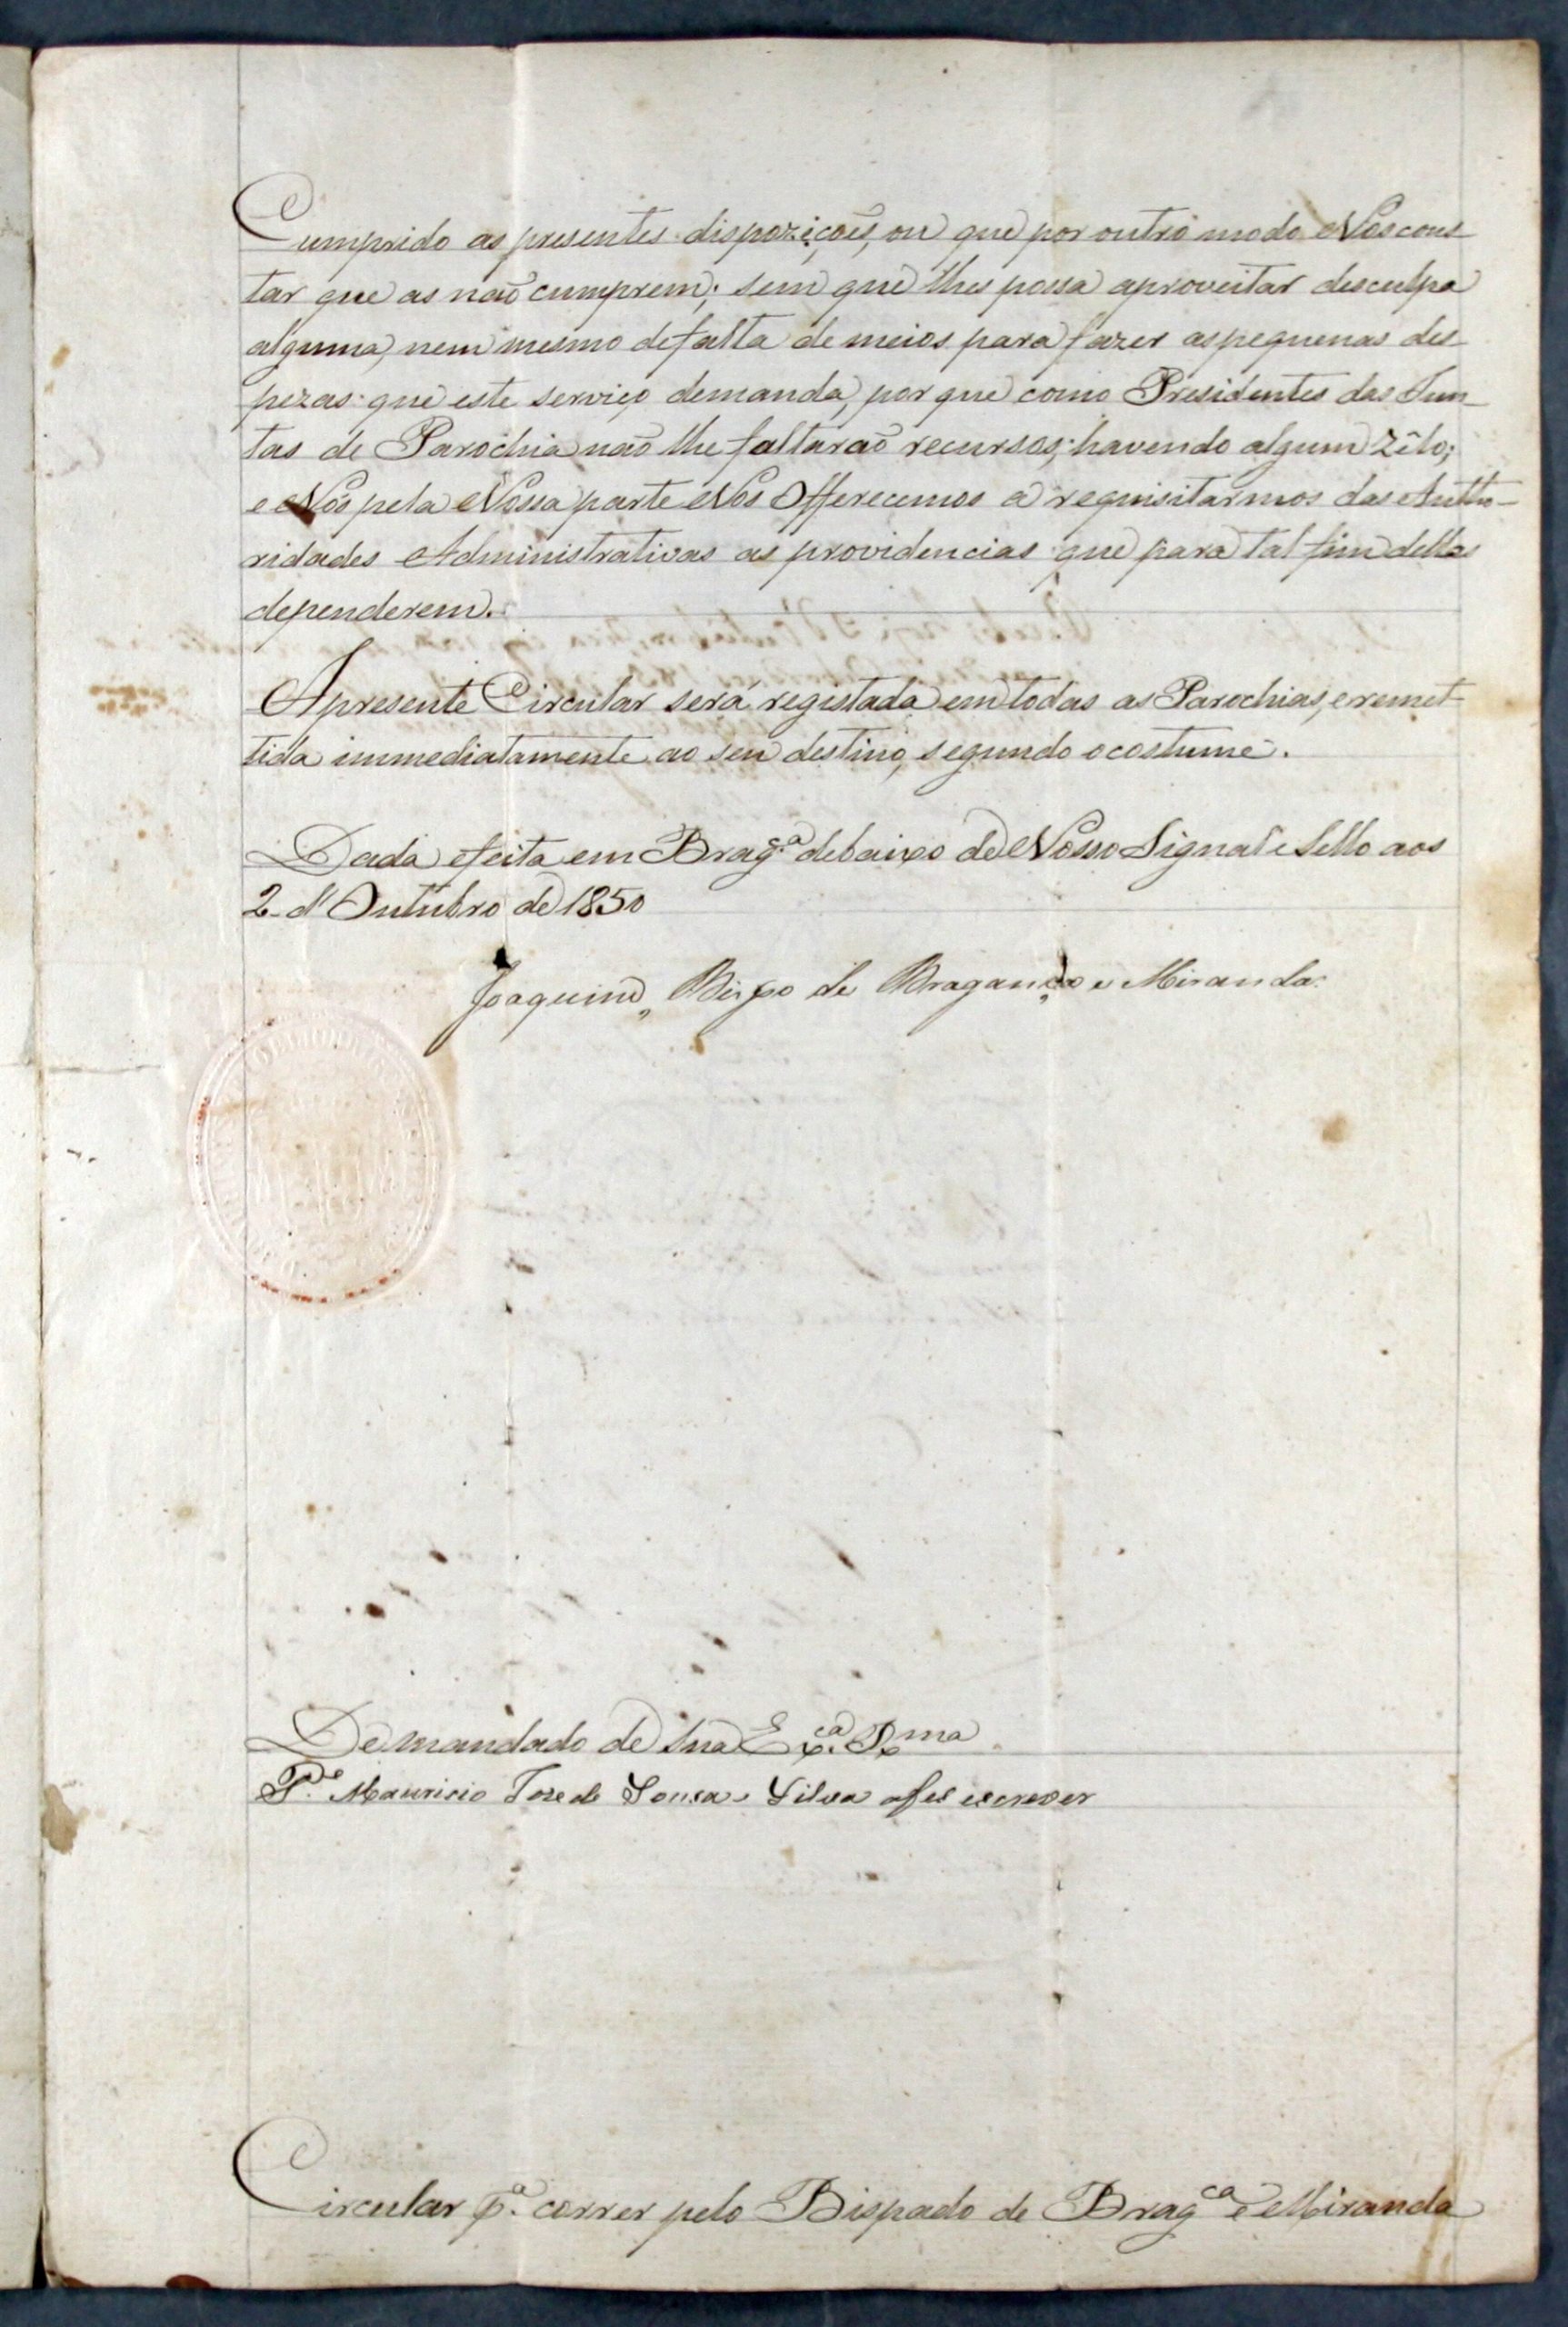 Cumprido as presentes dispozições, ou que por outro modo Nos cons-
tar que as não cumprem; sem que lhes possa aproveitar desculpa
alguma, nem mesmo de falta de meios para fazer as pequenas des-
pezas que este serviço demanda, por que como Presidentes das Jun-
tas de Parochia não lhe faltarão recursos, havendo algum Zêlo;
e Nós pela Nossa parte Nos Offerecemos a requisitarmos das Autho-
ridades Administrativas as providencias que para tal fim dellas
dependerem.
A presente Circular será registada em todas as Parochias, e remet-
tida immediatamente ao seu destino, segundo o costume.
Dada e feita em Brag.ª debaixo de Nosso Signal e Sello aos
2 d'Outubro de 1850
Joaquim, Bispo de Bragança e Miranda.
De mandado de Sua Ex.cia Rma
P.e Mauricio Jose de Sousa e Silva a fes escrever
Circular p.ª correr pelo Bispado de Bragca e Miranda